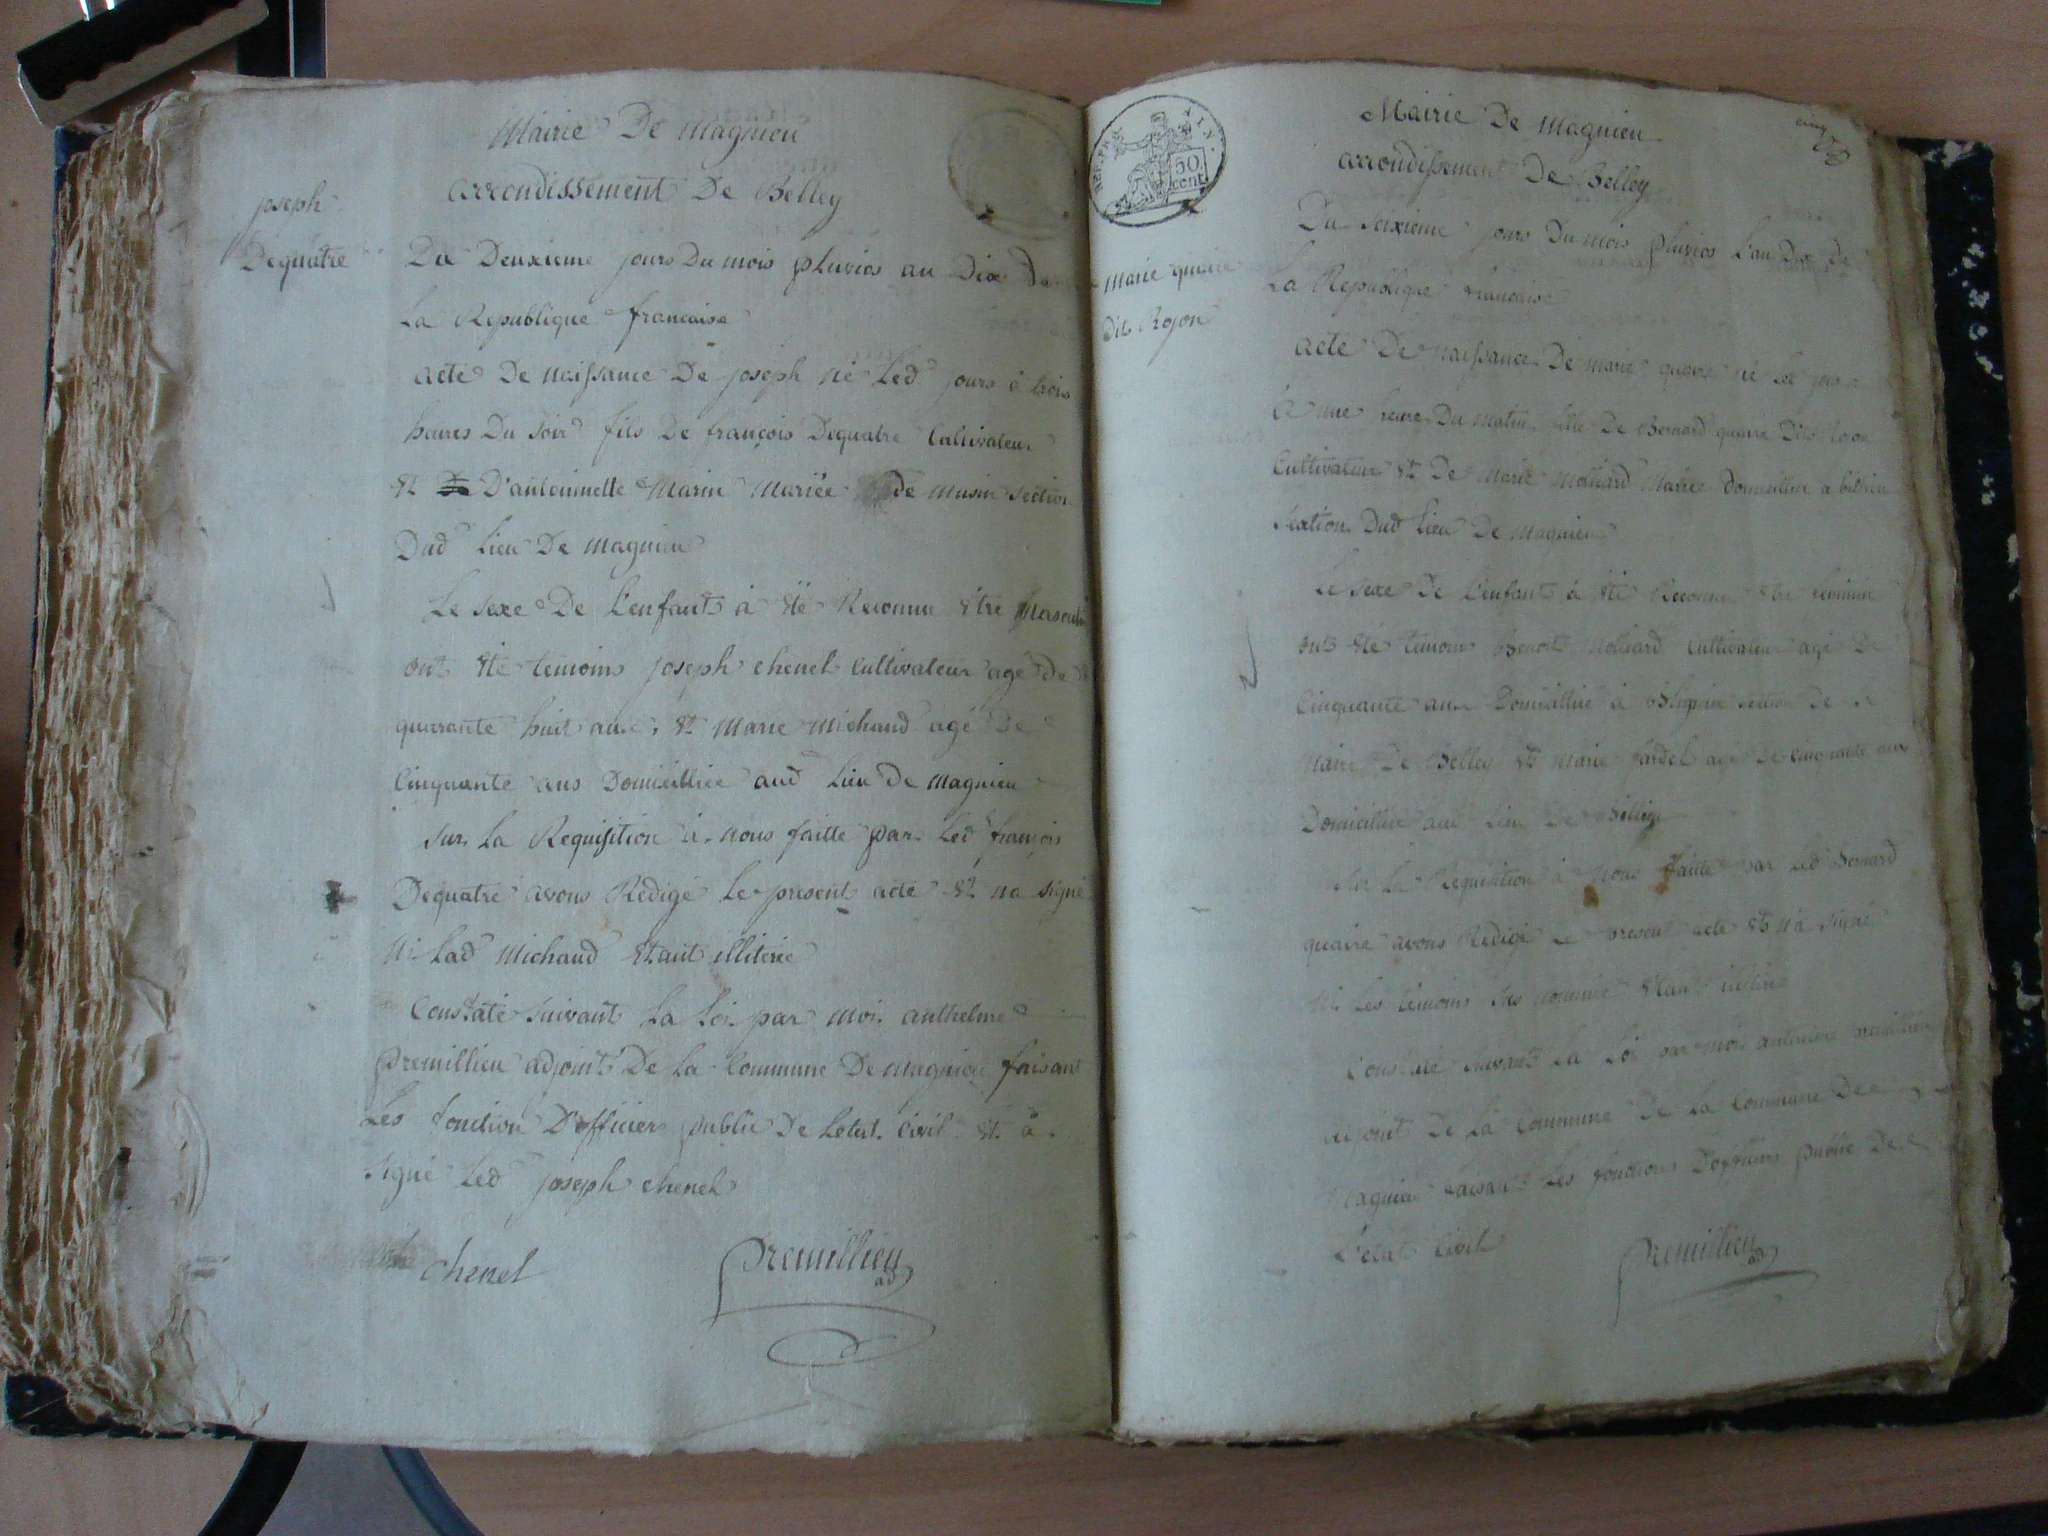 Mairie De magnieu
arrondissement De Belley
joseph
Dequatre
Du Deuxieme jours Du mois pluvios an Dix De
La Republique francaise
acte De naissance De joseph né Led jours à trois
heures Du soir fils De françois Dequatre Cultivateur
Et D'antoinnette Marin Mariée de musin section
Dud Lieu De magnieu
Le sexe De L'enfant à été Reconnu être Masculin
ont été temoins joseph chenel Cultivateur agé de
quarante huit ans Et Marie Michaud agé De
Cinquante ans Domicilliée aud Lieu De magnieu
sur La Requisition à nous faitte par Led françois
Dequatre avons Redigé Le present acte Et na signé
ni Lad Michaud Etant illiterée
Constaté suivant La Loi par moi anthelme
Premillieu adjoint De La Commune De magnieu faisant
Les fonction D'officier public De Letat Civil Et à
signé Led joseph chenel
chenel
Premillieu
adj
REP. FRA.
50
cent
Mairie De magnieu
arrondissement De Belley
marie quaire
dit Rojon
Du seixieme jours Du mois pluvios L'an Dix De
La Republique francaise
acte De naissance De marie quaire né Led jours
à une heure Du Matin fille De Bernard quaire Dit
Cultivateur Et De Marie Molliard Mariée Domicilliée a
section Dud Lieu De Magnieu
Le sexe De L'enfant à été Reconnu être feminin
ont été temoins Benoit Molliard Cultivateur agé De
Cinquante ans Domicillié à section De
Mairie De Belley Et Marie agé De cinquante ans
Domicilliée aud Lieu De
sur La Requisition à nous faitte par Led Bernard
quaire avons Redigé Le present acte Et n'a signé
ni Les temoins nommé Etant
Constaté suivant La Loi par moi anthelme premillieu
adjoint De La Commune De La Commune De
Magnieu faisant Les fonctions D'officier public De
L'etat Civil
Premillieu